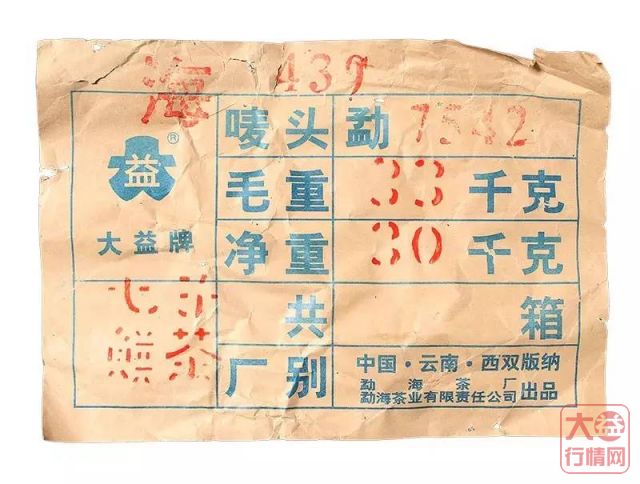 海 439
唛头 勐 7542
益 ®
大益牌
毛重 33 千克
净重 30 千克
七子
饼茶
共 箱
厂别 中国·云南·西双版纳
勐海茶厂
勐海茶业有限责任公司 出品
大益
行情网